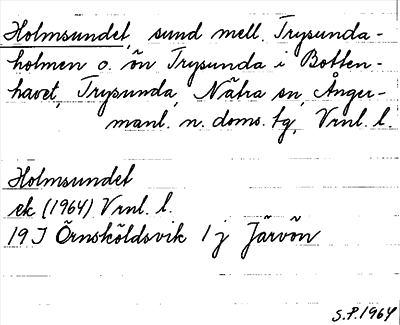 Holmsundet, sund mell. Trysunda-
holmen o. ön Trysunda i Botten-
havet, Trysunda, Nätra sn, Ånger-
manl. n. doms. tg, Vrnl. l.
Holmsundet
ek (1964) Vrnl. l.
19 J Örnsköldsvik 1 j Järvön
S.P. 1964